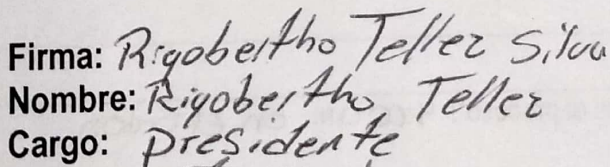 Firma: Rigobertho Tellez Silva
Nombre: Rigobertho Tellez
Cargo: presidente